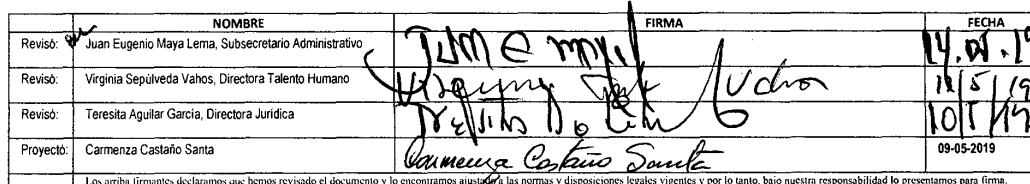 NOMBRE FIRMA FECHA
Revisó: Juan Eugenio Maya Lema, Subsecretario Administrativo
Revisó: Virginia Sepúlveda Vahos, Directora Talento Humano
Revisó: Teresita Aguilar García, Directora Jurídica
Proyectó: Carmenza Castaño Santa Carmenza Castaño Santa 09-05-2019
Los arriba firmantes declaramos que hemos revisado el documento y lo encontramos ajustado a las normas y disposiciones legales vigentes y por lo tanto, bajo nuestra responsabilidad lo presentamos para firma.